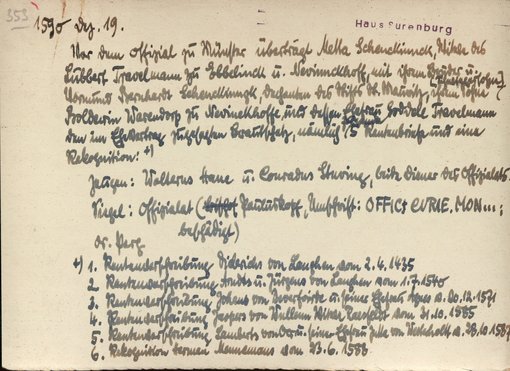 353
1590 Dez. 19.
Haus Surenburg
Vor dem Offizial zu Münster überträgt Metta Schenckinck, Witwe des
Lubbert Travelmann zu Ebbelinck u. Nevinckhoff, mit ihrem Bruder u.
Vormund Bernhardt Schenckinck, Dechanten des Stifts St. Mauritz, ihrem
Boldewin Warendorp zu Nevinckhoffe und dessen Ehefrau Goddele Travelmann
den im Ehevertrag zugesagten Brautschatz, nämlich 5 Rentenbriefe und eine
Rekognition: +)
Zeugen: Wolterus Hane u. Conradus Stuving, beide Diener des Offizialats.
Siegel: Offizialat (Pauluskopf, Umschrift: OFFICI CURIE. MON...;
beschädigt)
Or. Perg.
+) 1. Rentenverschreibung Diderichs von Langhen vom 2.4.1435
2. Rentenverschreibung Arndts u. Jürgens von Langhen vom 1.7.1540
3. Rentenverschreibung Johans von Beverforde u. seiner Ehefrau Agnes v. 20.12.1571
4. Rentenverschreibung Jaspers von Wullenn Witwe Raesfeldt vom 31.10.1585
5. Rentenverschreibung Lamberts von Oer u. seiner Ehefrau Jutte von Westerholt v. 28.10.1587
6. Rekognition herman Mennemans vom 23.6.1588